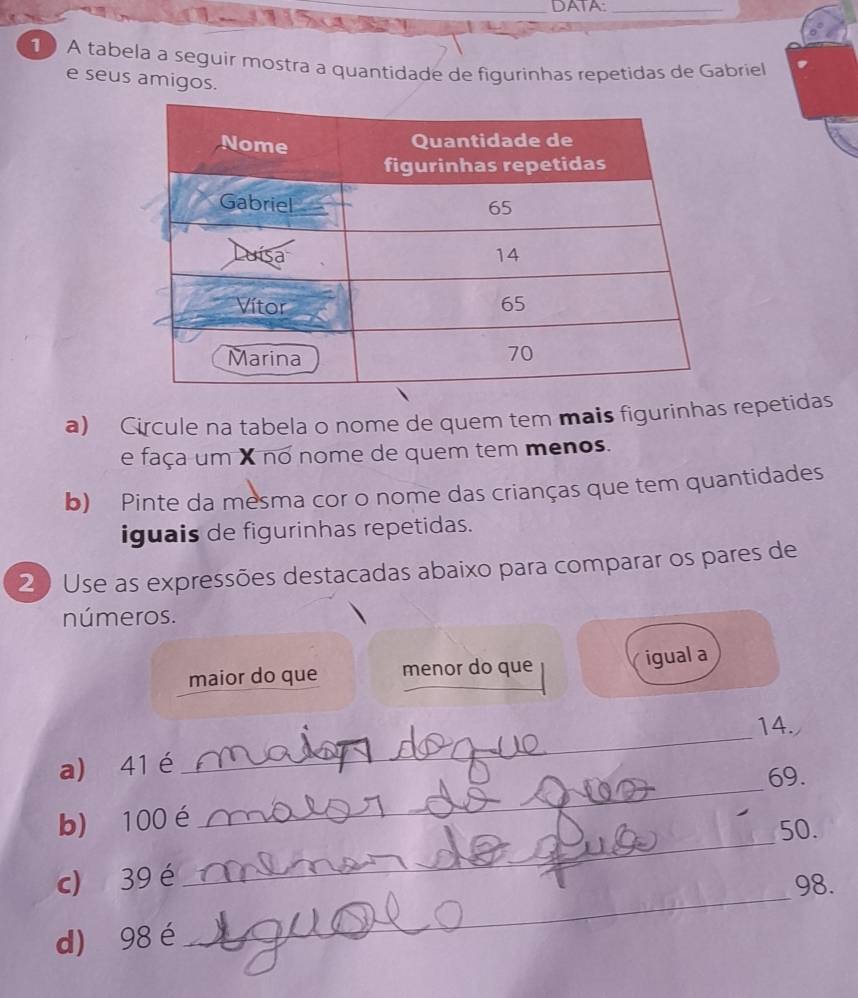 DATA:
1 A tabela a seguir mostra a quantidade de figurinhas repetidas de Gabriel
e seus amigos.
Nome Quantidade de
figurinhas repetidas
Gabriel 65
Luísa 14
Vítor 65
Marina 70
a) Circule na tabela o nome de quem tem mais figurinhas repetidas
e faça um X no nome de quem tem menos.
b) Pinte da mesma cor o nome das crianças que tem quantidades
iguais de figurinhas repetidas.
2 Use as expressões destacadas abaixo para comparar os pares de
números.
maior do que menor do que igual a
a) 41 é maior do que 14.
b) 100 é maior do que 69.
c) 39 é menor do que 50.
d) 98 é igual o 98.